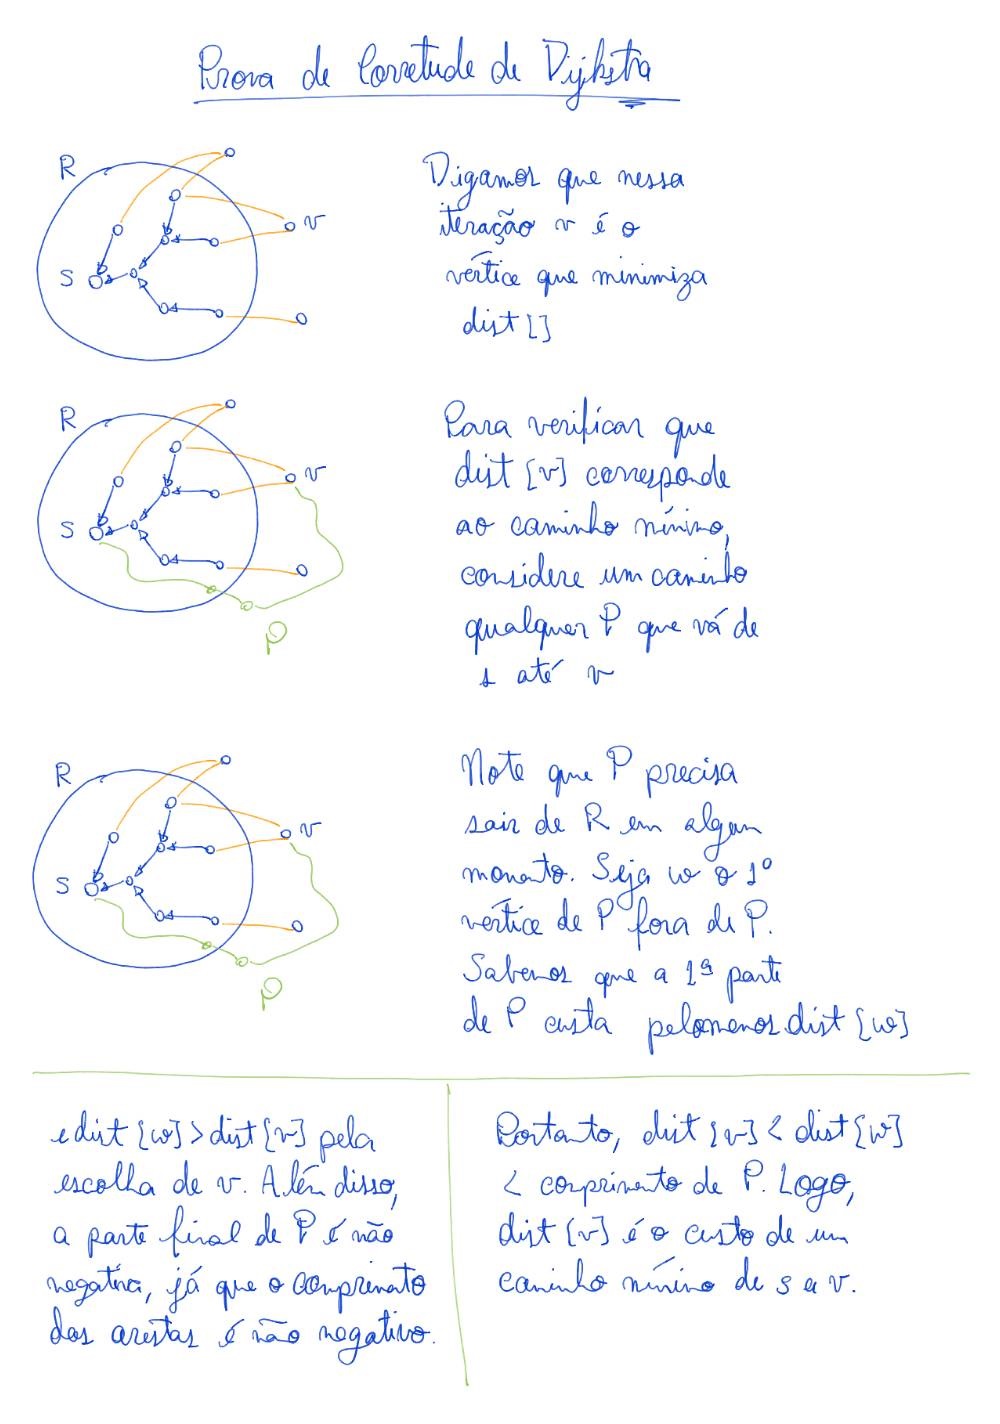 Prova de Corretude de Dijkstra
R
v
S
Digamos que nessa
iteração v é o
vértice que minimiza
dist[]
R
v
S
P
Para verificar que
dist[v] corresponde
ao caminho mínimo,
considere um caminho
qualquer P que vá de
s até v
R
v
S
P
Note que P precisa
sair de R em algum
momento. Seja w o 1º
vértice de P fora de P.
Sabemos que a 1ª parte
de P custa pelomenos dist[w]
e dist[w] > dist[v] pela
escolha de v. Além disso,
a parte final de P é não
negativa, já que o comprimento
das arestas é não negativo.
Portanto, dist[v] < dist[w]
< comprimento de P. Logo,
dist[v] é o custo de um
caminho mínimo de s a v.